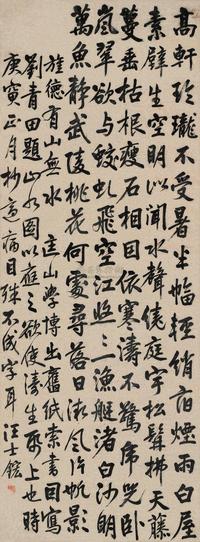 高軒玲瓏不受暑半幅輕綃宿煙雨白屋
素壁生空明似聞水聲繞庭宇松髯拂天藤
蔓垂枯根瘦石相因依寒濤不驚虎兕卧
嵐翠欲与蛟虬飛空江三二漁艇渚白沙明
萬魚靜武陵桃花何處尋落日微風片帆影
旌德有山無水 匡山學博出舊紙索書因寫
劉青田題山水圖以應之欲使濤生上也時
庚寅正月杪病目殊不成字耳 汪士鋐